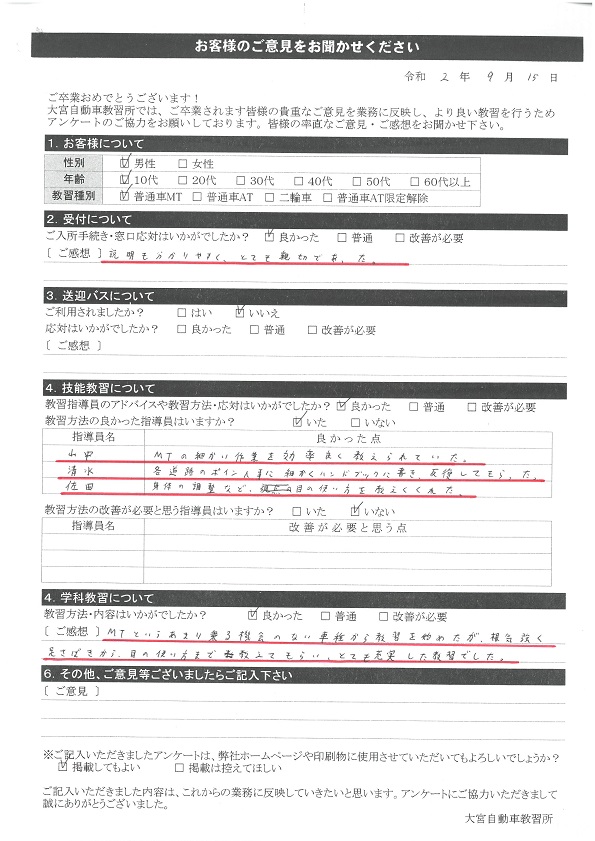 お客様のご意見をお聞かせください
令和 2 年 9 月 15 日
ご卒業おめでとうございます！
大宮自動車教習所では、ご卒業されます皆様の貴重なご意見を業務に反映し、より良い教習を行うため
アンケートのご協力をお願いしております。皆様の率直なご意見・ご感想をお聞かせ下さい。
1. お客様について
性別 ☑ 男性 □ 女性
年齢 ☑ 10代 □ 20代 □ 30代 □ 40代 □ 50代 □ 60代以上
教習種別 ☑ 普通車MT □ 普通車AT □ 二輪車 □ 普通車AT限定解除
2. 受付について
ご入所手続き・窓口応対はいかがでしたか？ ☑ 良かった □ 普通 □ 改善が必要
［ ご感想 ］ 説明も分かりやすく、とても親切であった。
3. 送迎バスについて
ご利用されましたか？ □ はい ☑ いいえ
応対はいかがでしたか？ □ 良かった □ 普通 □ 改善が必要
［ ご感想 ］
4. 技能教習について
教習指導員のアドバイスや教習方法・応対はいかがでしたか？ ☑ 良かった □ 普通 □ 改善が必要
教習方法の良かった指導員はいますか？ ☑ いた □ いない
指導員名 良かった点
山中 MTの細かい作業を効率良く教えられていた。
清水 各道路のポイント事に細かくハンドブックに書き、反復してもらった。
佐田 身体の調整など、目の使い方を教えてくれた。
教習方法の改善が必要と思う指導員はいますか？ □ いた ☑ いない
指導員名 改善が必要と思う点
4. 学科教習について
教習方法・内容はいかがでしたか？ ☑ 良かった □ 普通 □ 改善が必要
［ ご感想 ］ MTというあまり乗る機会のない車種から教習を始めたが、根気強く
足さばきから、目の使い方まで教えてもらい、とても充実した教習でした。
6. その他、ご意見等ございましたらご記入下さい
［ ご意見 ］
※ご記入いただきましたアンケートは、弊社ホームページや印刷物に使用させていただいてもよろしいでしょうか？
☑ 掲載してもよい □ 掲載は控えてほしい
ご記入いただきました内容は、これからの業務に反映していきたいと思います。アンケートにご協力いただきまして
誠にありがとうございました。
大宮自動車教習所